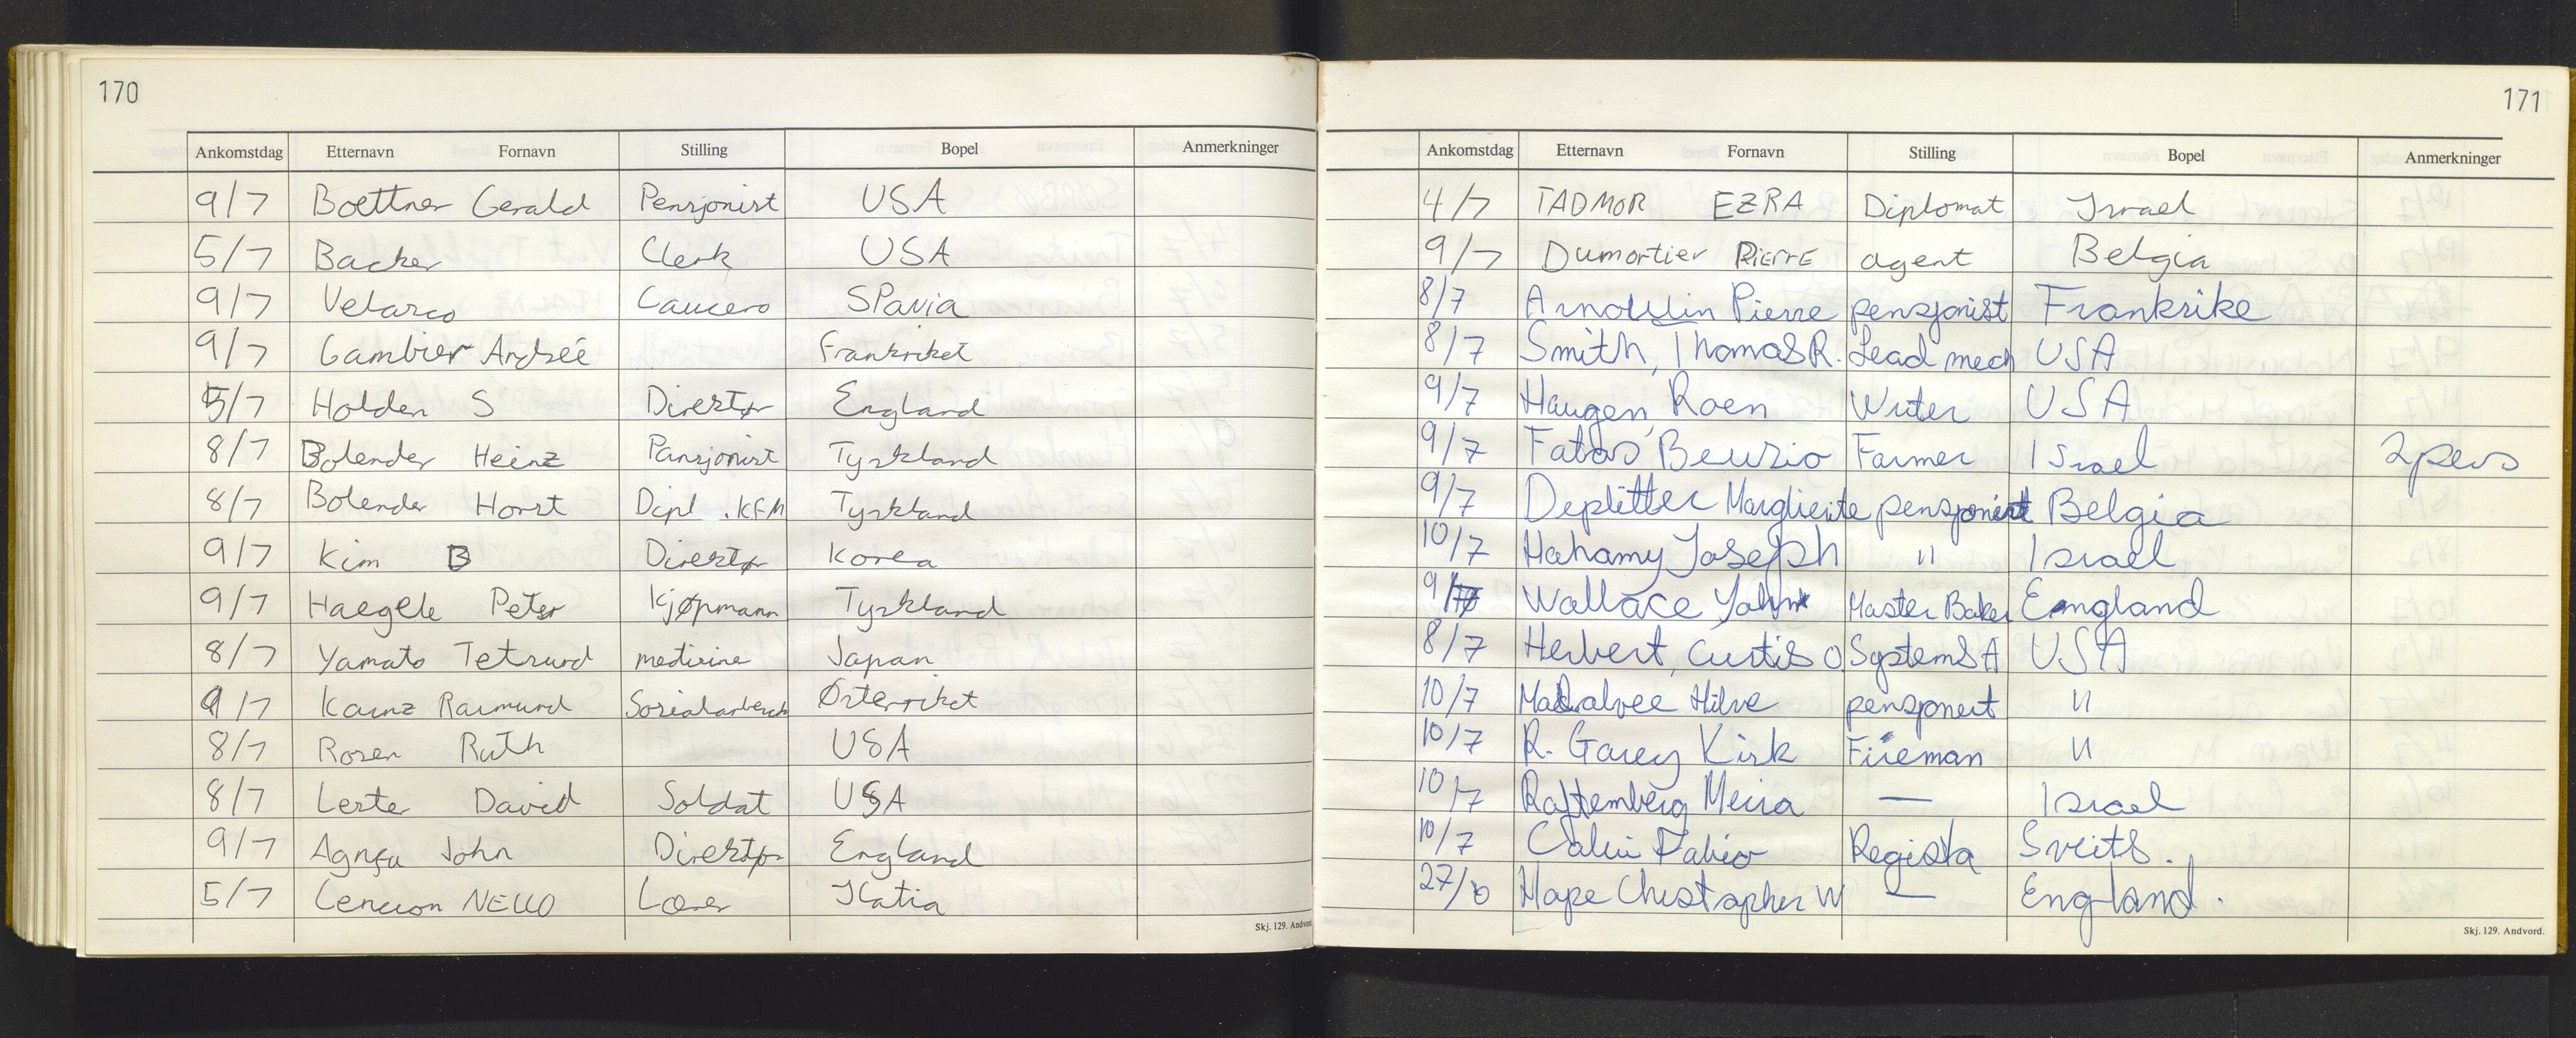 170
Ankomstdag Etternavn Fornavn Stilling Bopel Anmerkninger
9/7 Boettner Gerald Pensjonist USA
5/7 Backer Clerk USA
9/7 Velasco SPania
9/7 Gambier Frankriket
5/7 Holden S Direktør England
8/7 Bolender Heinz Pansjonist Tyskland
8/7 Bolender Horst Dipl. KFM Tyskland
9/7 Kim B Direktør Korea
9/7 Haegele Peter Kjøpmann Tyskland
8/7 Yamato medisine Japan
9/7 Kainz Raimund Østerriket
8/7 Rosen Ruth USA
8/7 Lester David Soldat USA
9/7 John Direktør England
5/7 NELLO Lærer Italia
Skj. 129. Andvord
171
Ankomstdag Etternavn Fornavn Stilling Bopel Anmerkninger
4/7 TADMOR EZRA Diplomat Israel
9/7 Dumortier PiErrE agent Belgia
8/7 Pierre pensjonist Frankrike
8/7 Smith, Thomas R. Lead mech USA
9/7 Haugen, Roen Writer USA
9/7 Farmer Israel 2 pers
9/7 Deplitter pensjonist Belgia
10/7 Hahamy Joseph " Israel
9/7 Wallace John Master Baker England
8/7 Herbert, Curtis O Systems A USA
10/7 "
10/7 R. Garey Kirk Fireman "
10/7 — Israel
10/7 Fabio Regista Sveits.
Hope Christopher W — England.
Skj. 129. Andvord.